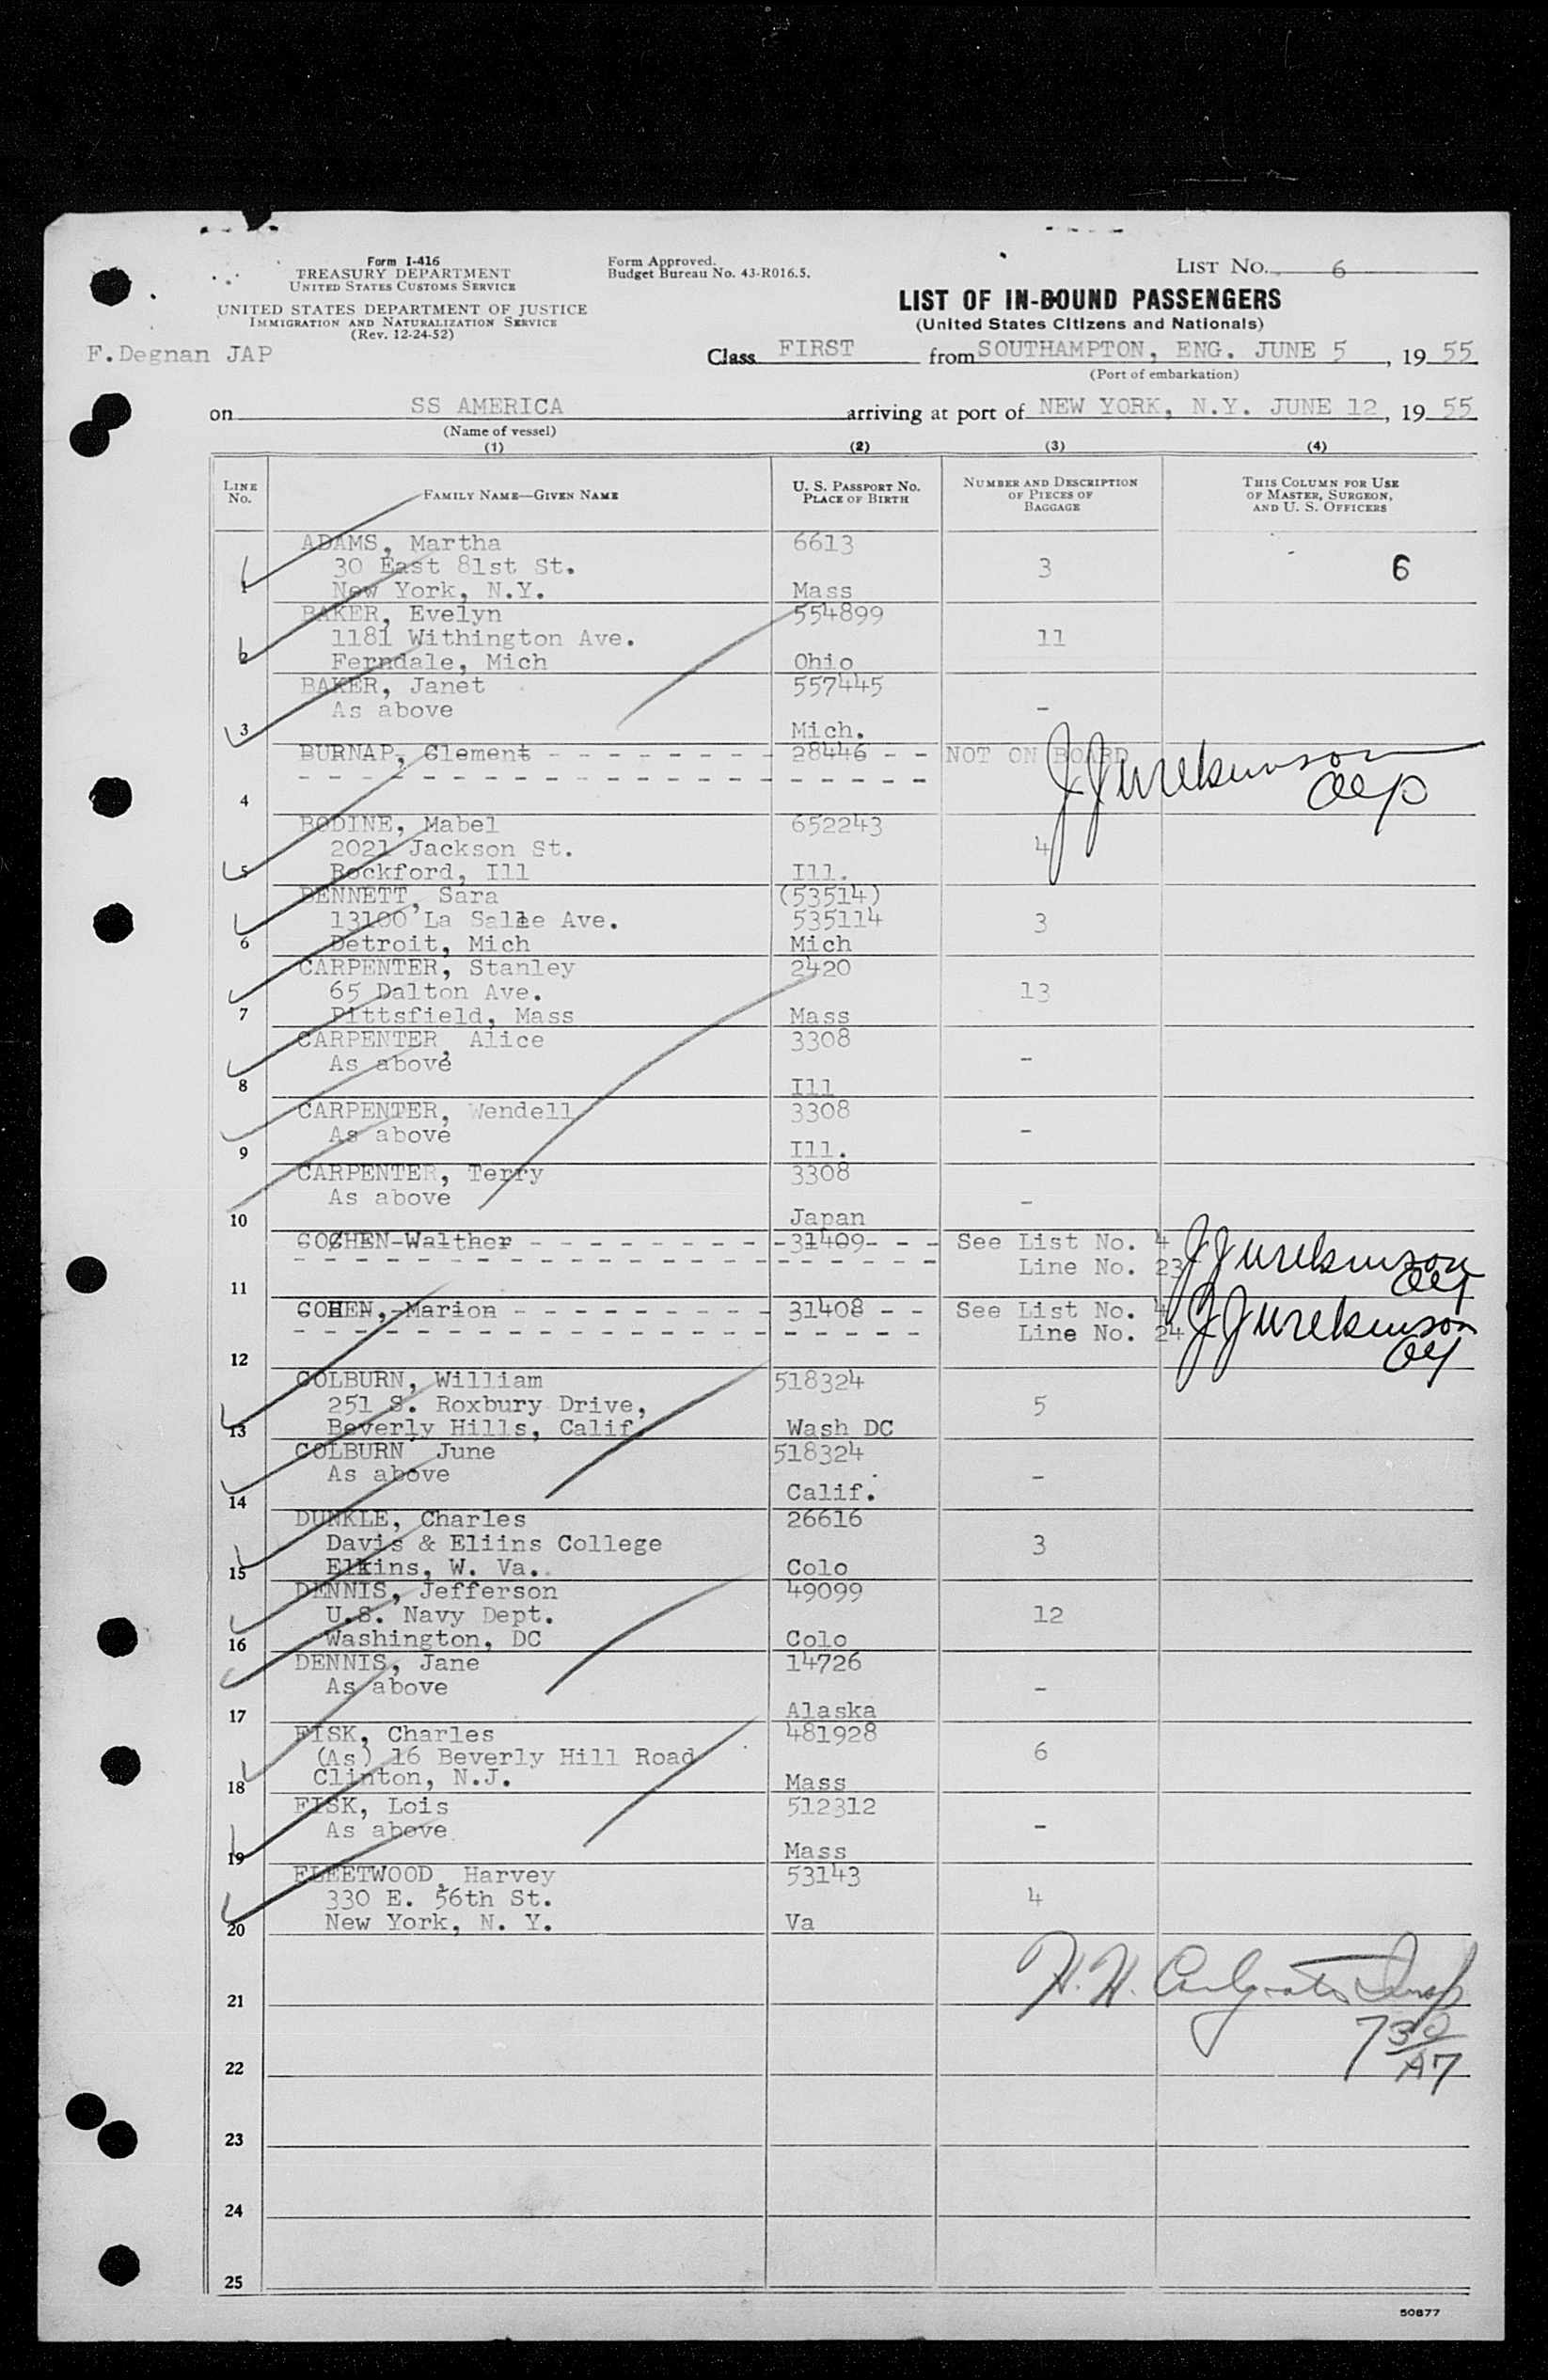 Form I-416
TREASURY DEPARTMENT
UNITED STATES CUSTOMS SERVICE
UNITED STATES DEPARTMENT OF JUSTICE
IMMIGRATION AND NATURALIZATION SERVICE
(Rev. 12-24-52)
F.Degnan JAP
Form Approved.
Budget Bureau No. 43-R016.5.
LIST NO. 6
LIST OF IN-BOUND PASSENGERS
(United States Citizens and Nationals)
Class FIRST from SOUTHAMPTON, ENG. JUNE 5, 1955
(Port of embarkation)
on SS AMERICA arriving at port of NEW YORK, N.Y. JUNE 12, 1955
(Name of vessel)
(1) (2) (3) (4)
LINE NO. FAMILY NAME—GIVEN NAME U. S. PASSPORT NO. PLACE OF BIRTH NUMBER AND DESCRIPTION OF PIECES OF BAGGAGE THIS COLUMN FOR USE OF MASTER, SURGEON, AND U. S. OFFICERS
ADAMS, Martha 6613
30 East 81st St. 3 6
1 New York, N.Y. Mass
BAKER, Evelyn 554899
1181 Withington Ave. 11
2 Ferndale, Mich Ohio
BAKER, Janet 557445
As above -
3 Mich.
BURNAP, Clement - - - - - - - - 28446 - - NOT ON BOARD
4
BODINE, Mabel 652243
2021 Jackson St. 4
5 Rockford, Ill Ill.
BENNETT, Sara (53514)
13100 La Salle Ave. 535114 3
6 Detroit, Mich Mich
CARPENTER, Stanley 2420
65 Dalton Ave. 13
7 Pittsfield, Mass Mass
CARPENTER, Alice 3308
As above -
8 Ill
CARPENTER, Wendell 3308
As above -
9 Ill.
CARPENTER, Terry 3308
As above -
10 Japan
COCHEN-Walther - - - - - - - - -31409- - - See List No. 4
Line No. 23
11
COHEN,-Marion - - - - - - - - - 31408 - - See List No. 4
Line No. 24
12
COLBURN, William 518324
251 S. Roxbury Drive, 5
13 Beverly Hills, Calif. Wash DC
COLBURN June 518324
As above -
14 Calif.
DUNKLE, Charles 26616
Davis & Eliins College 3
15 Elkins, W. Va. Colo
DENNIS, Jefferson 49099
U.S. Navy Dept. 12
16 Washington, DC Colo
DENNIS, Jane 14726
As above -
17 Alaska
FISK, Charles 481928
(As) 16 Beverly Hill Road 6
18 Clinton, N.J. Mass
FISK, Lois 512312
As above -
19 Mass
FLEETWOOD, Harvey 53143
330 E. 56th St. 4
20 New York, N. Y. Va
21
22
23
24
25
50877